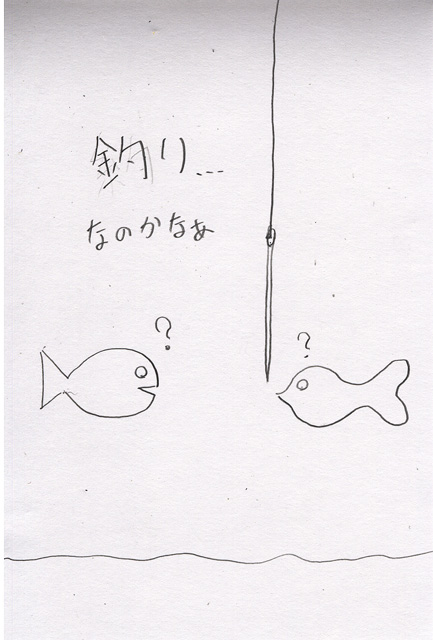 釣り...
なのかなぁ
?
?